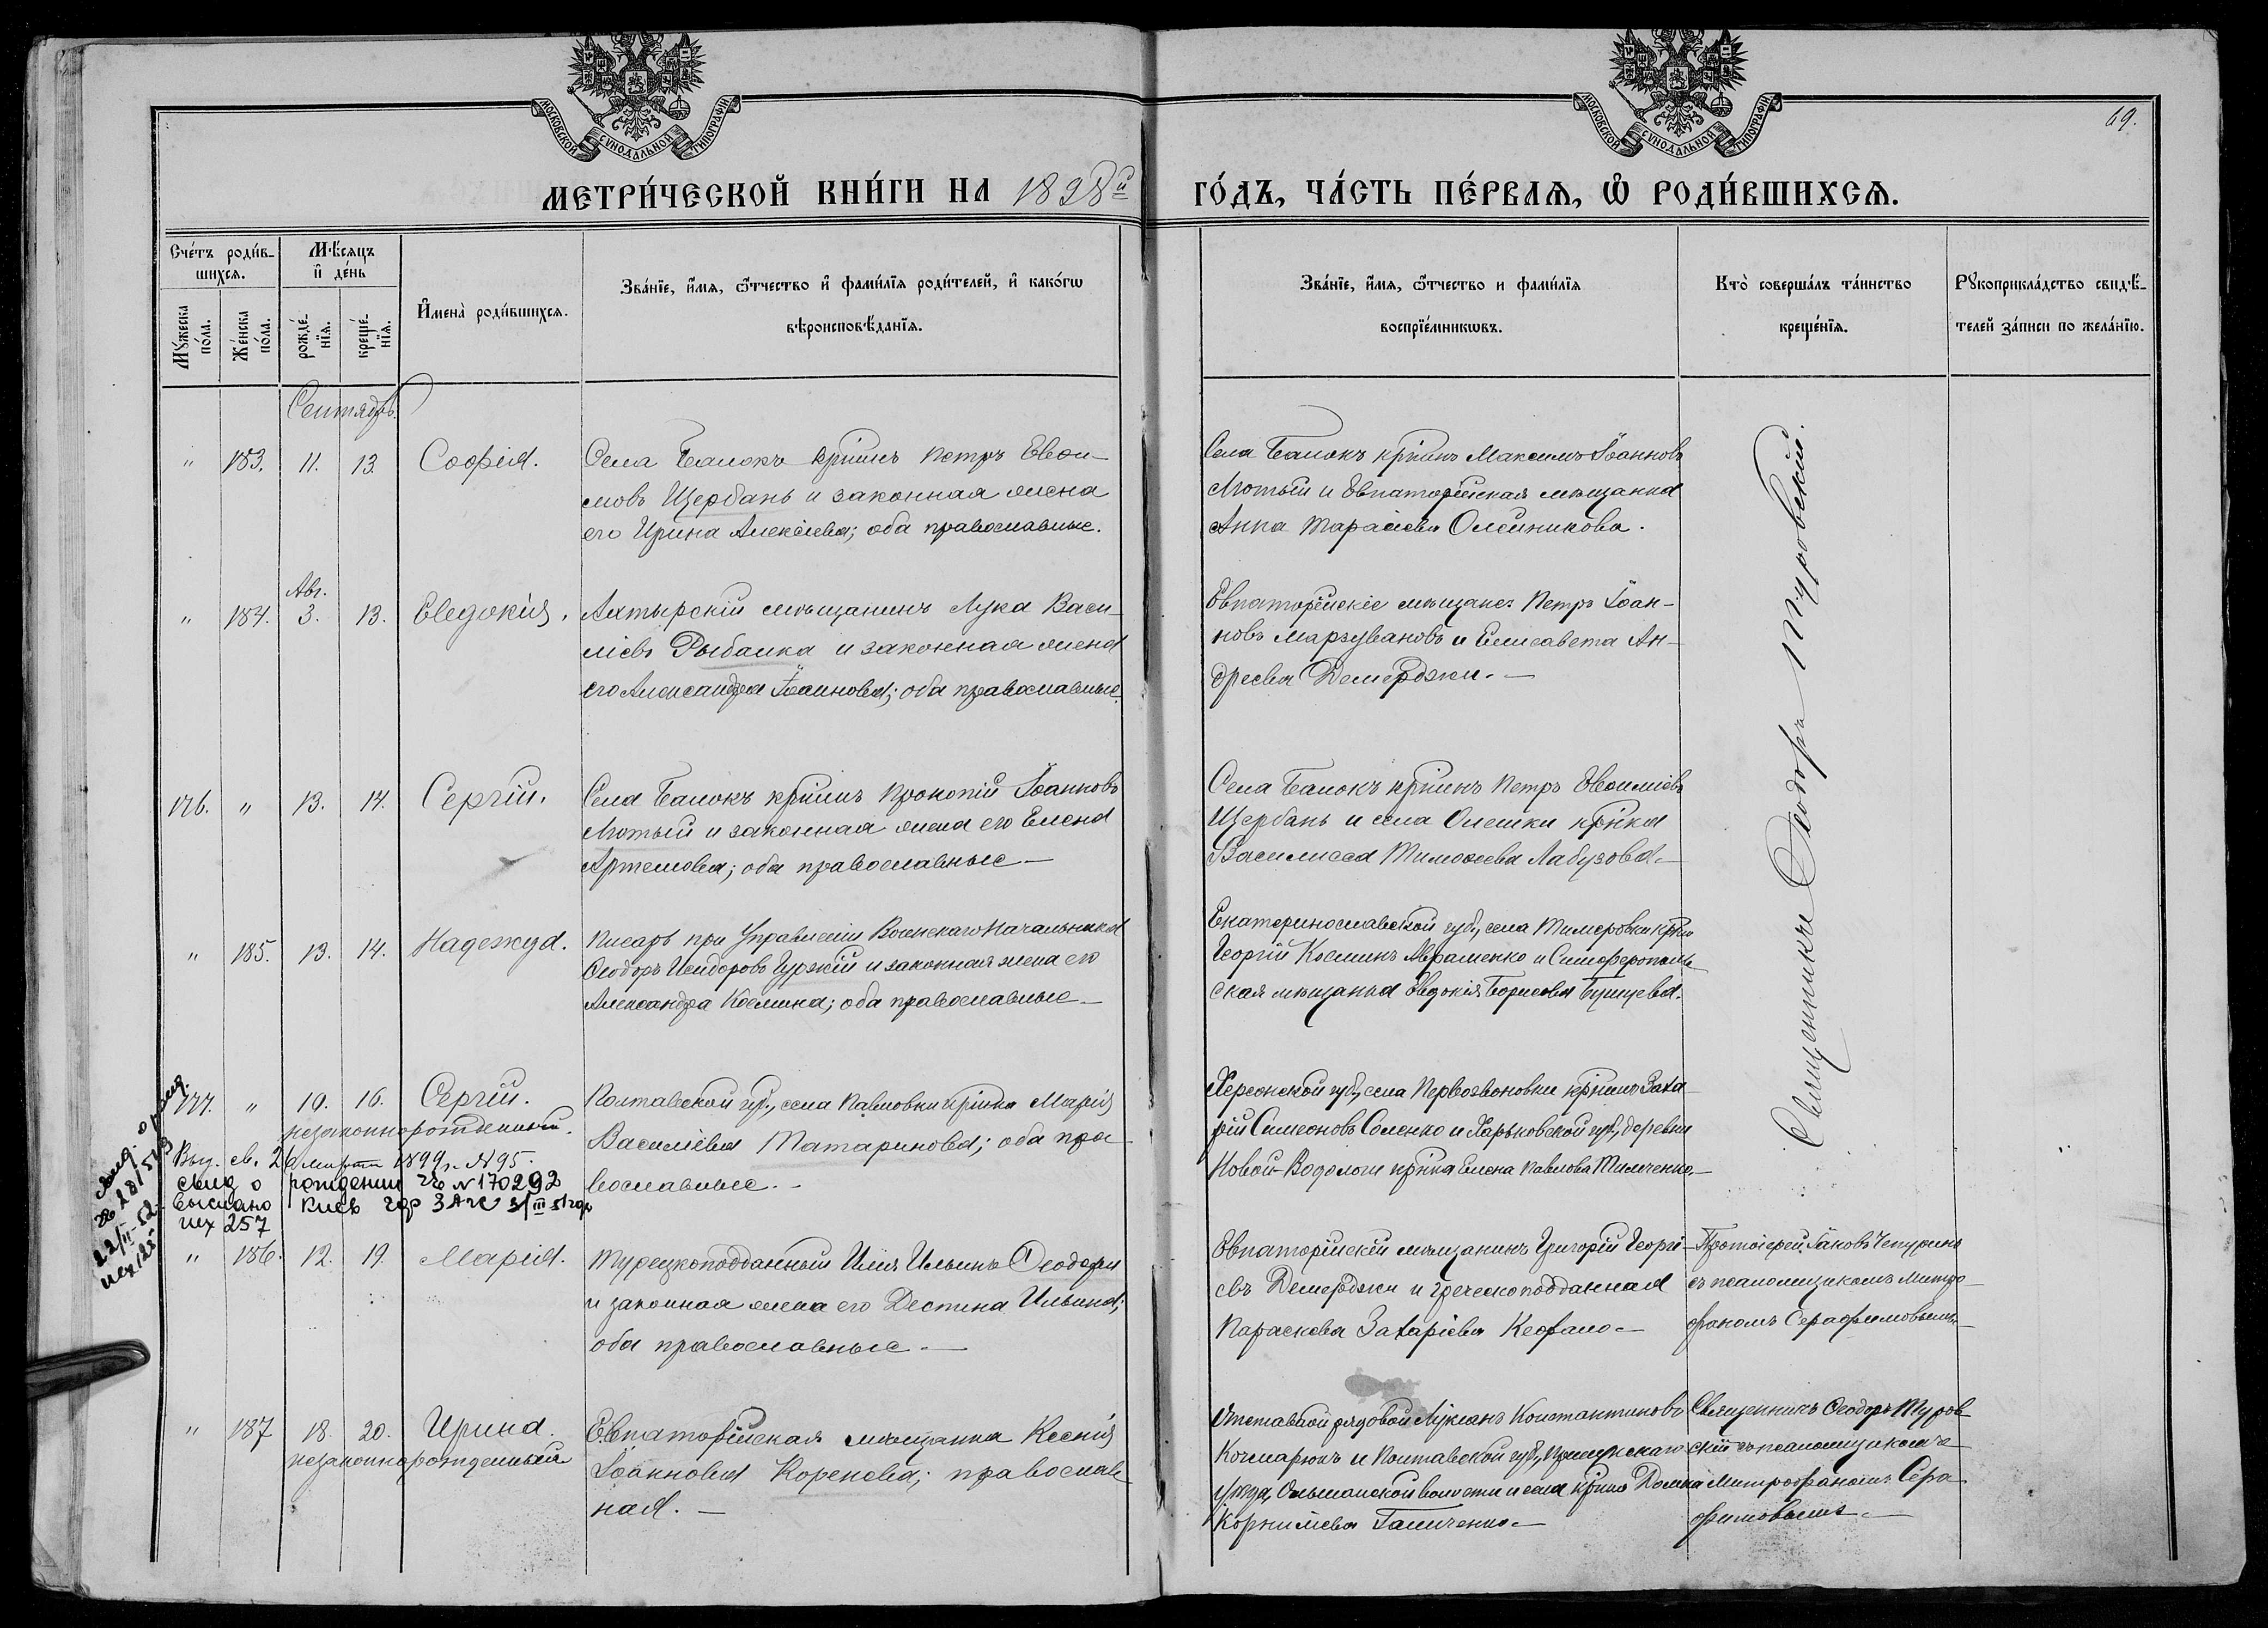 МОСКОВСКОЙ СУНОДАЛЬНОЙ ТИПОГРАФІИ
МОСКОВСКОЙ СУНОДАЛЬНОЙ ТИПОГРАФІИ
69.
МЕТРИ́ЧЕСКОЙ КНИ́ГИ НА 1898й ГО́ДЪ, ЧА́СТЬ ПЕ́РВАѦ, Ѡ РОДИ́ВШИХСѦ.
Сче́тъ роди́в-
шихсѧ.
Мꙋ́жеска по́ла.
Же́нска по́ла.
Мѣ́сяцъ и҆ де́нь
рожде́-нїѧ.
креще́-нїѧ.
И҆мена̀ роди́вшихсѧ.
Зва́нїе, и҆́мѧ, ѻ҆́тчество и҆ фами́лїѧ роди́телей, и҆ како́гѡ
вѣроисповѣ́данїѧ.
Зва́нїе, и҆́мѧ, ѻ҆́тчество и фами́лїѧ
воспрїе́мникѡвъ.
Кто̀ соверша́лъ та́инство
креще́нїѧ.
Рꙋкоприкла́дство свидѣ́-
телей за́писи по жела́нїю.
Сентябрь
" 183. 11. 13. Софія.
Села Балокъ кр҃нинъ Петръ Евѳи-
мовъ Щербань и законная жена
его Ирина Алексіева; оба православные.
Села Балокъ кр҃нинъ Максимъ Іоанновъ
Лютый и Евпаторійская мѣщанка
Анна Тарасіева Олейникова.
Священникъ Ѳеодоръ Туровскій.
Авг.
" 184. 3. 13. Евдокія.
Ахтырскій мѣщанинъ Лука Васи-
ліевъ Рыбалка и законная жена
его Александра Іоаннова; оба православные.
Евпаторійскіе мѣщане: Петръ Іоан-
новъ Марзувановъ и Елисавета Ан-
дреева Демерджи.
176. " 13. 14. Сергій.
Села Балокъ кр҃нинъ Прокопій Іоанновъ
Лютый и законная жена его Елена
Артемова; оба православные
Села Балокъ кр҃нинъ Петръ Евѳиміевъ
Щербань и села Олешки кр҃нка
Василисса Тимоѳеева Лабузова.
" 185. 13. 14. Надежда.
Писарь при Управленіи Воинскаго Начальника
Ѳеодоръ Исидоровъ Гуржій и законная жена его
Александра Косьмина; оба православные
Екатеринославской губ., села Тимеровки кр҃нъ
Георгій Косминъ Авраменко и Симферополь-
ская мѣщанка Евдокія Борисова Бунцева.
177. " 10. 16. Сергій.
незаконнорожденный.
Полтавской губ., села Павловки кр҃нка Марія
Василіева Татаринова; оба пра-
вославные.
Херсонской губ., села Первозвоновки кр҃нинъ Заха-
рій Симеоновъ Соленко и Харьковской губ., деревни
Новой-Водологи кр҃нка Елена Павлова Тимченко.
Выд. св. 26 марта 1899 г. № 95.
свид о рождении № 170292
выслано Киев гор ЗАГС 3/III 51 год
исх 257
22/II-52
исх 125
" 186. 12. 19. Марія.
Турецкоподданный Илія Ильинъ Ѳеодори
и законная жена его Деспина Ильина;
оба православные.
Евпаторійскій мѣщанинъ Григорій Георгі-
евъ Демерджи и греческоподданная
Параскева Захаріева Кефало
Протоіерей Іаковъ Чепуринъ
съ псаломщикомъ Митро-
фаномъ Серафимовымъ.
" 187 18. 20. Ирина.
незаконнорожденная
Евпаторійская мѣщанка Ксенія
Іоаннова Коренева; православ-
ная.
Отставной рядовой Лукіанъ Константиновъ
Кочмарюкъ и Полтавской губ.,
уѣзда, Ольшанской волости и села кр҃нка Домна
Корниліева Галиченко
Священникъ Ѳеодоръ Туров-
скій съ псаломщикомъ
Митрофаномъ Сера-
фимовымъ.